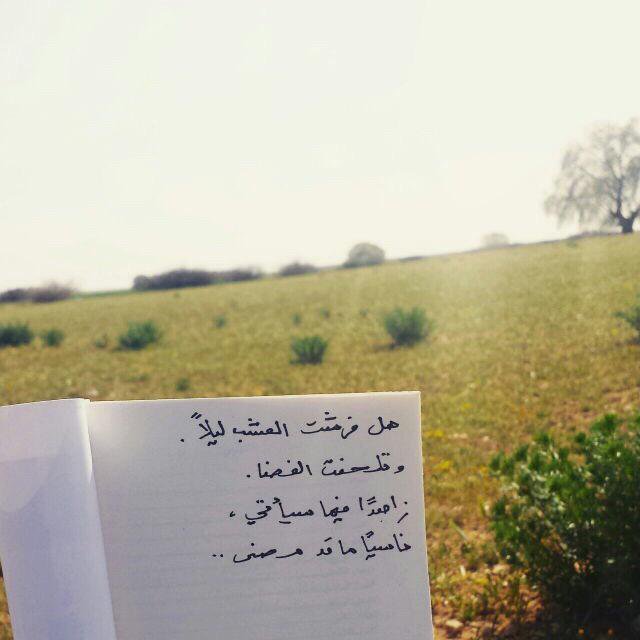 هل فرشت العشب ليلاً.
وتلحفت الفضا.
زاهدًا فيما سيأتي ،
ناسيًا ما قد مضى ..